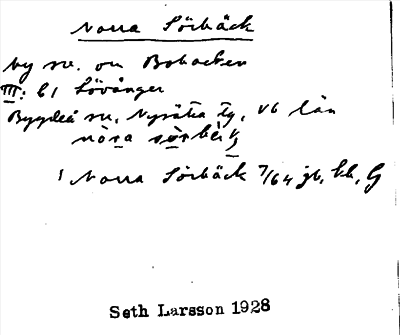 Norra Sörbäck
by sv. om Bobacken
III: 61 Lövånger
Bygdeå sn, Nysätra tg, Vb län
nò̱ra sø̱rbɛk,
1 Norra Sörbäck 7/64 jb, kb, G
Seth Larsson 1928